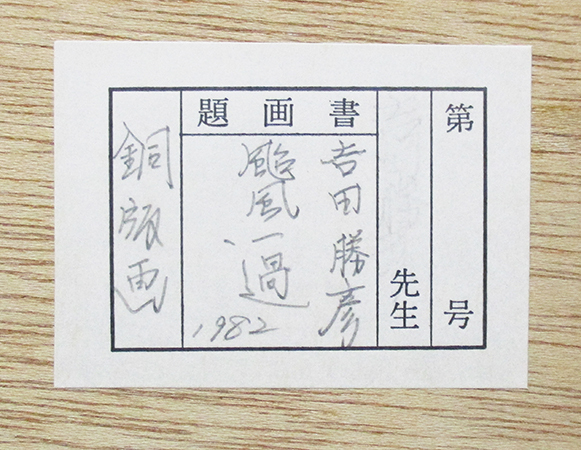 第 号
先生
書画題
吉田勝彦
颱風一過
1982
銅版画